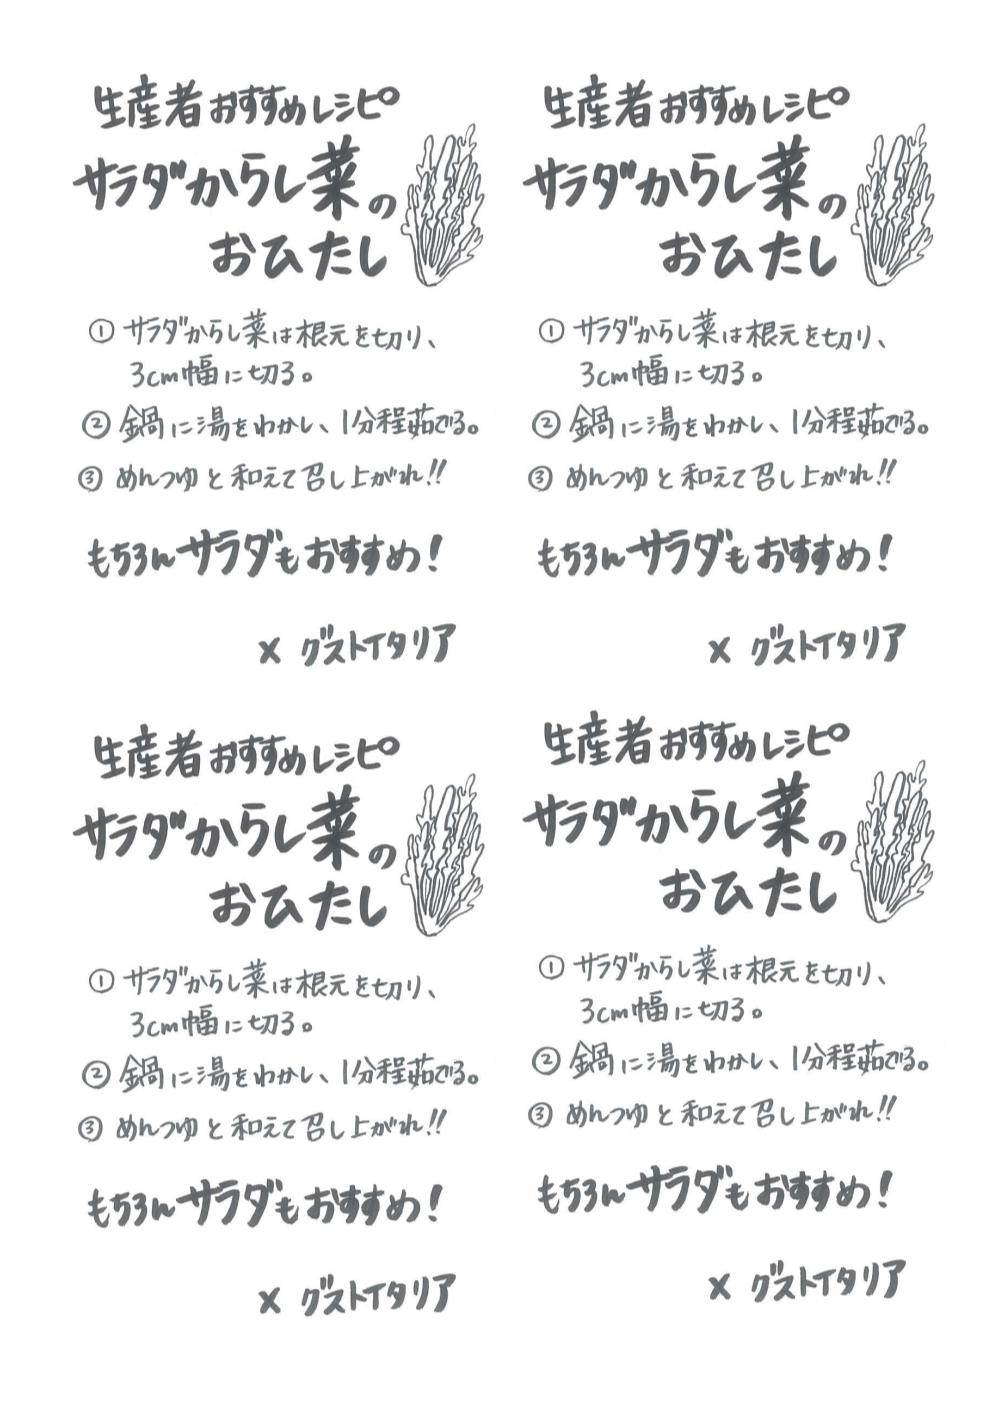 生産者おすすめレシピ
サラダからし菜の
おひたし
① サラダからし菜は根元を切り、
3cm幅に切る。
② 鍋に湯をわかし、1分程茹でる。
③ めんつゆと和えて召し上がれ!!
もちろんサラダもおすすめ!
× グストイタリア
生産者おすすめレシピ
サラダからし菜の
おひたし
① サラダからし菜は根元を切り、
3cm幅に切る。
② 鍋に湯をわかし、1分程茹でる。
③ めんつゆと和えて召し上がれ!!
もちろんサラダもおすすめ!
× グストイタリア
生産者おすすめレシピ
サラダからし菜の
おひたし
① サラダからし菜は根元を切り、
3cm幅に切る。
② 鍋に湯をわかし、1分程茹でる。
③ めんつゆと和えて召し上がれ!!
もちろんサラダもおすすめ!
× グストイタリア
生産者おすすめレシピ
サラダからし菜の
おひたし
① サラダからし菜は根元を切り、
3cm幅に切る。
② 鍋に湯をわかし、1分程茹でる。
③ めんつゆと和えて召し上がれ!!
もちろんサラダもおすすめ!
× グストイタリア